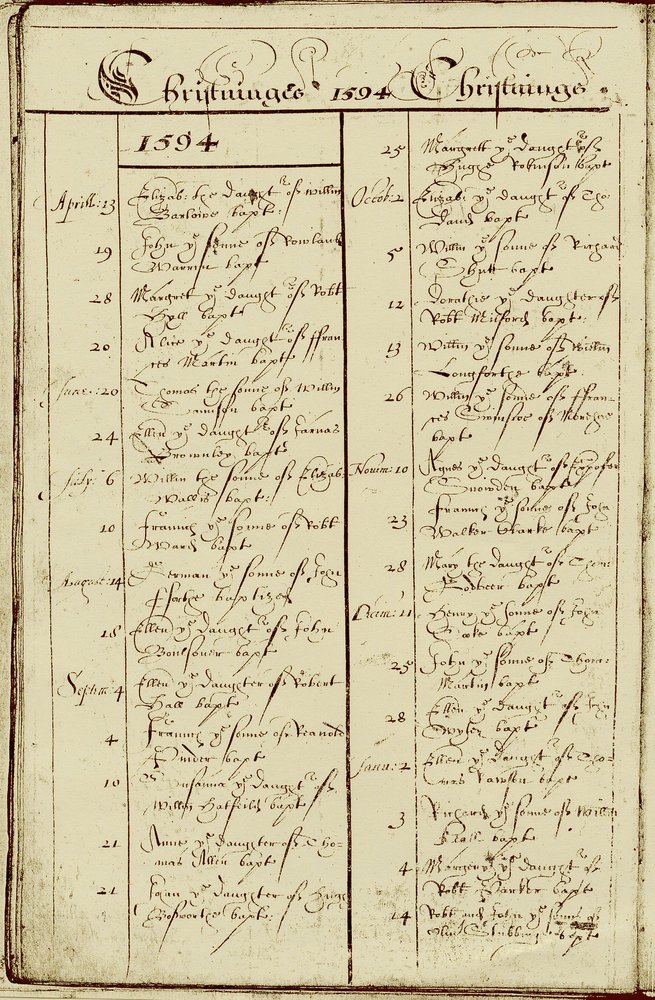 Christninges 1594 Christnings
1594
Aprill: 13 Elizab: the daught of willm
Barlowe bapt:
19 John ye sonne of Rowland
Warrin bapt
28 Margret ye daught of Robt
Hyll bapt
20 Alice ye daught of ffran
ces Martin bapt
June: 20 Thomas the sonne of Willm
bapt
24 Ellen ye daught of
Brownley bapt
July: 6 Willm the sonne of Elizab:
Wallis bapt:
10 Francis ye sonne of Robt
Ward bapt
August: 14 Herman ye sonne of John
fforthe baptized
18 Ellen ye daught of John
bapt
Septem: 4 Ellen ye daughter of Robert
Hall bapt
4 Francis ye sonne of
Pinder bapt
10 Susanna ye daught of
Willm Hatfeild bapt
21 Anne ye daughter of Tho=
mas Allen bapt
21 Joan ye daughter of Hugh
Bosworthe bapt:
25 Margrett ye daught of
Hughe Robinson bapt
Octob: 2 Elizab: ye daught of Tho:
bapt
5 Willm ye sonne of Richard
bapt
12 Dorathie ye daughter of
Robt Miliford bapt:
13 Willm ye sonne of Willm
Longforthe bapt
26 Willm ye sonne of ffran=
ces of
bapt
Novem: 10 Agnes ye daught of
Snowden bapt
23 Francis ye sonne of John
Walker Clarke bapt
28 Mary the daught of Thom:
bapt
Decem: 11 Henry ye sonne of John
bapt
25 John ye sonne of Thom:
Martin bapt
28 Ellen ye daught of John
bapt
Janu: 2 Ellen ye daught of Tho=
mas bapt
3 Richard ye sonne of Willm
bapt
4 Margery ye daught of
Robt Barker bapt
14 Robt and John ye sonns of
bapt